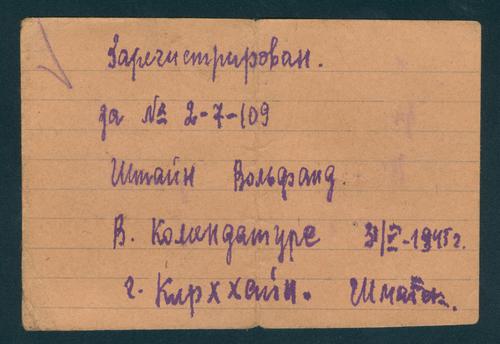 Зарегистрирован.
за № 2-7-109
Штайн Вольфанд.
В. Комендатуре 3/V-1945 г.
г. Кирххайн.